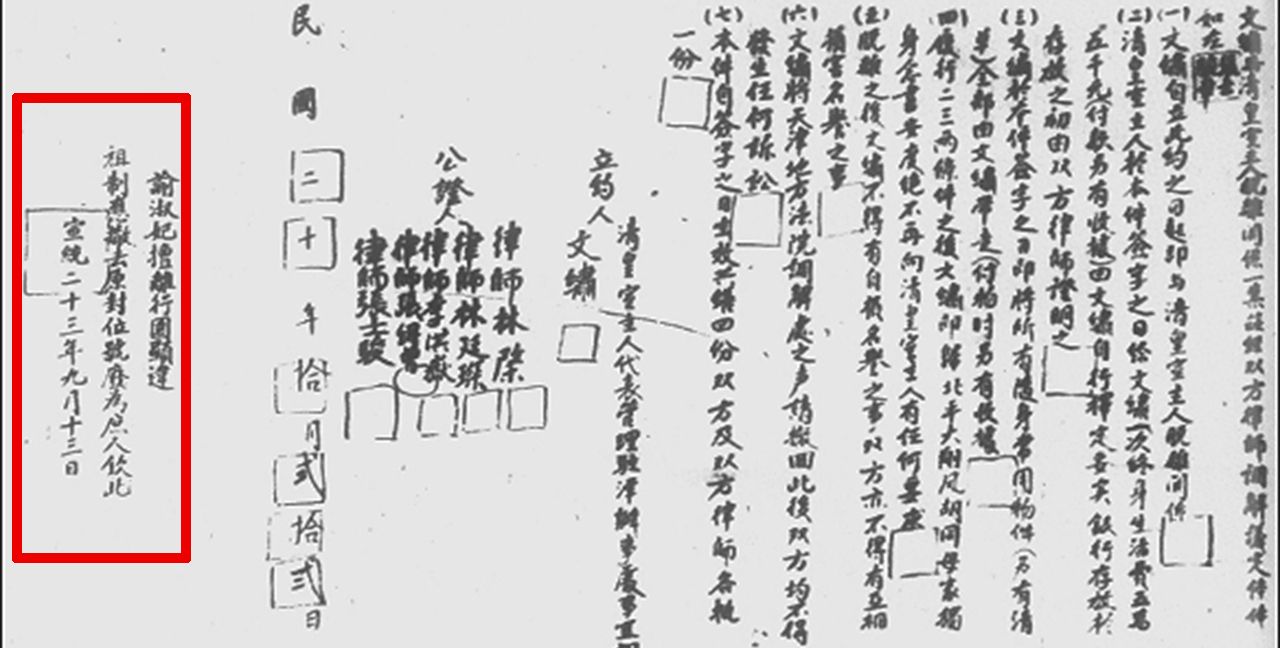 文繡與清皇室主人脫離關係一案茲經双方律師調解議定條件
如左
(一)文繡自立此約之日起即与清皇室主人脫離關係
(二)清皇室主人於本件簽字之日給文繡一次終身生活費五萬
五千元(付款另有收據)由文繡自行擇定妥实銀行存放於
存放之初由双方律師證明之
(三)文繡於本件簽字之日即將所有隨身常用物件(另有清
單)全部由文繡帶走(付物时另有收據)
(四)履行二三兩條件之後文繡即歸北平大翔凤胡同母家獨
身
(五)脫離之後文繡不得有自損名譽之事双方亦不得有互相
損害名譽之事
(六)文繡將天津地方法院調解處之声請撤回此後双方均不得
發生任何訴訟
(七)本件自簽字之日生效共繕四份双方及双方律師各執
一份
清皇室主人代表管理駐津辦事處事宜
立約人 文繡
公證人 律師林棨
律師林廷琛
律師李洪嶽
律師張紹曾
律師張士駿
民國二十年拾月弍拾弍日
諭淑妃擅離行園顯違
祖制應撤去原封位號廢为庶人欽此
宣統二十三年九月十三日